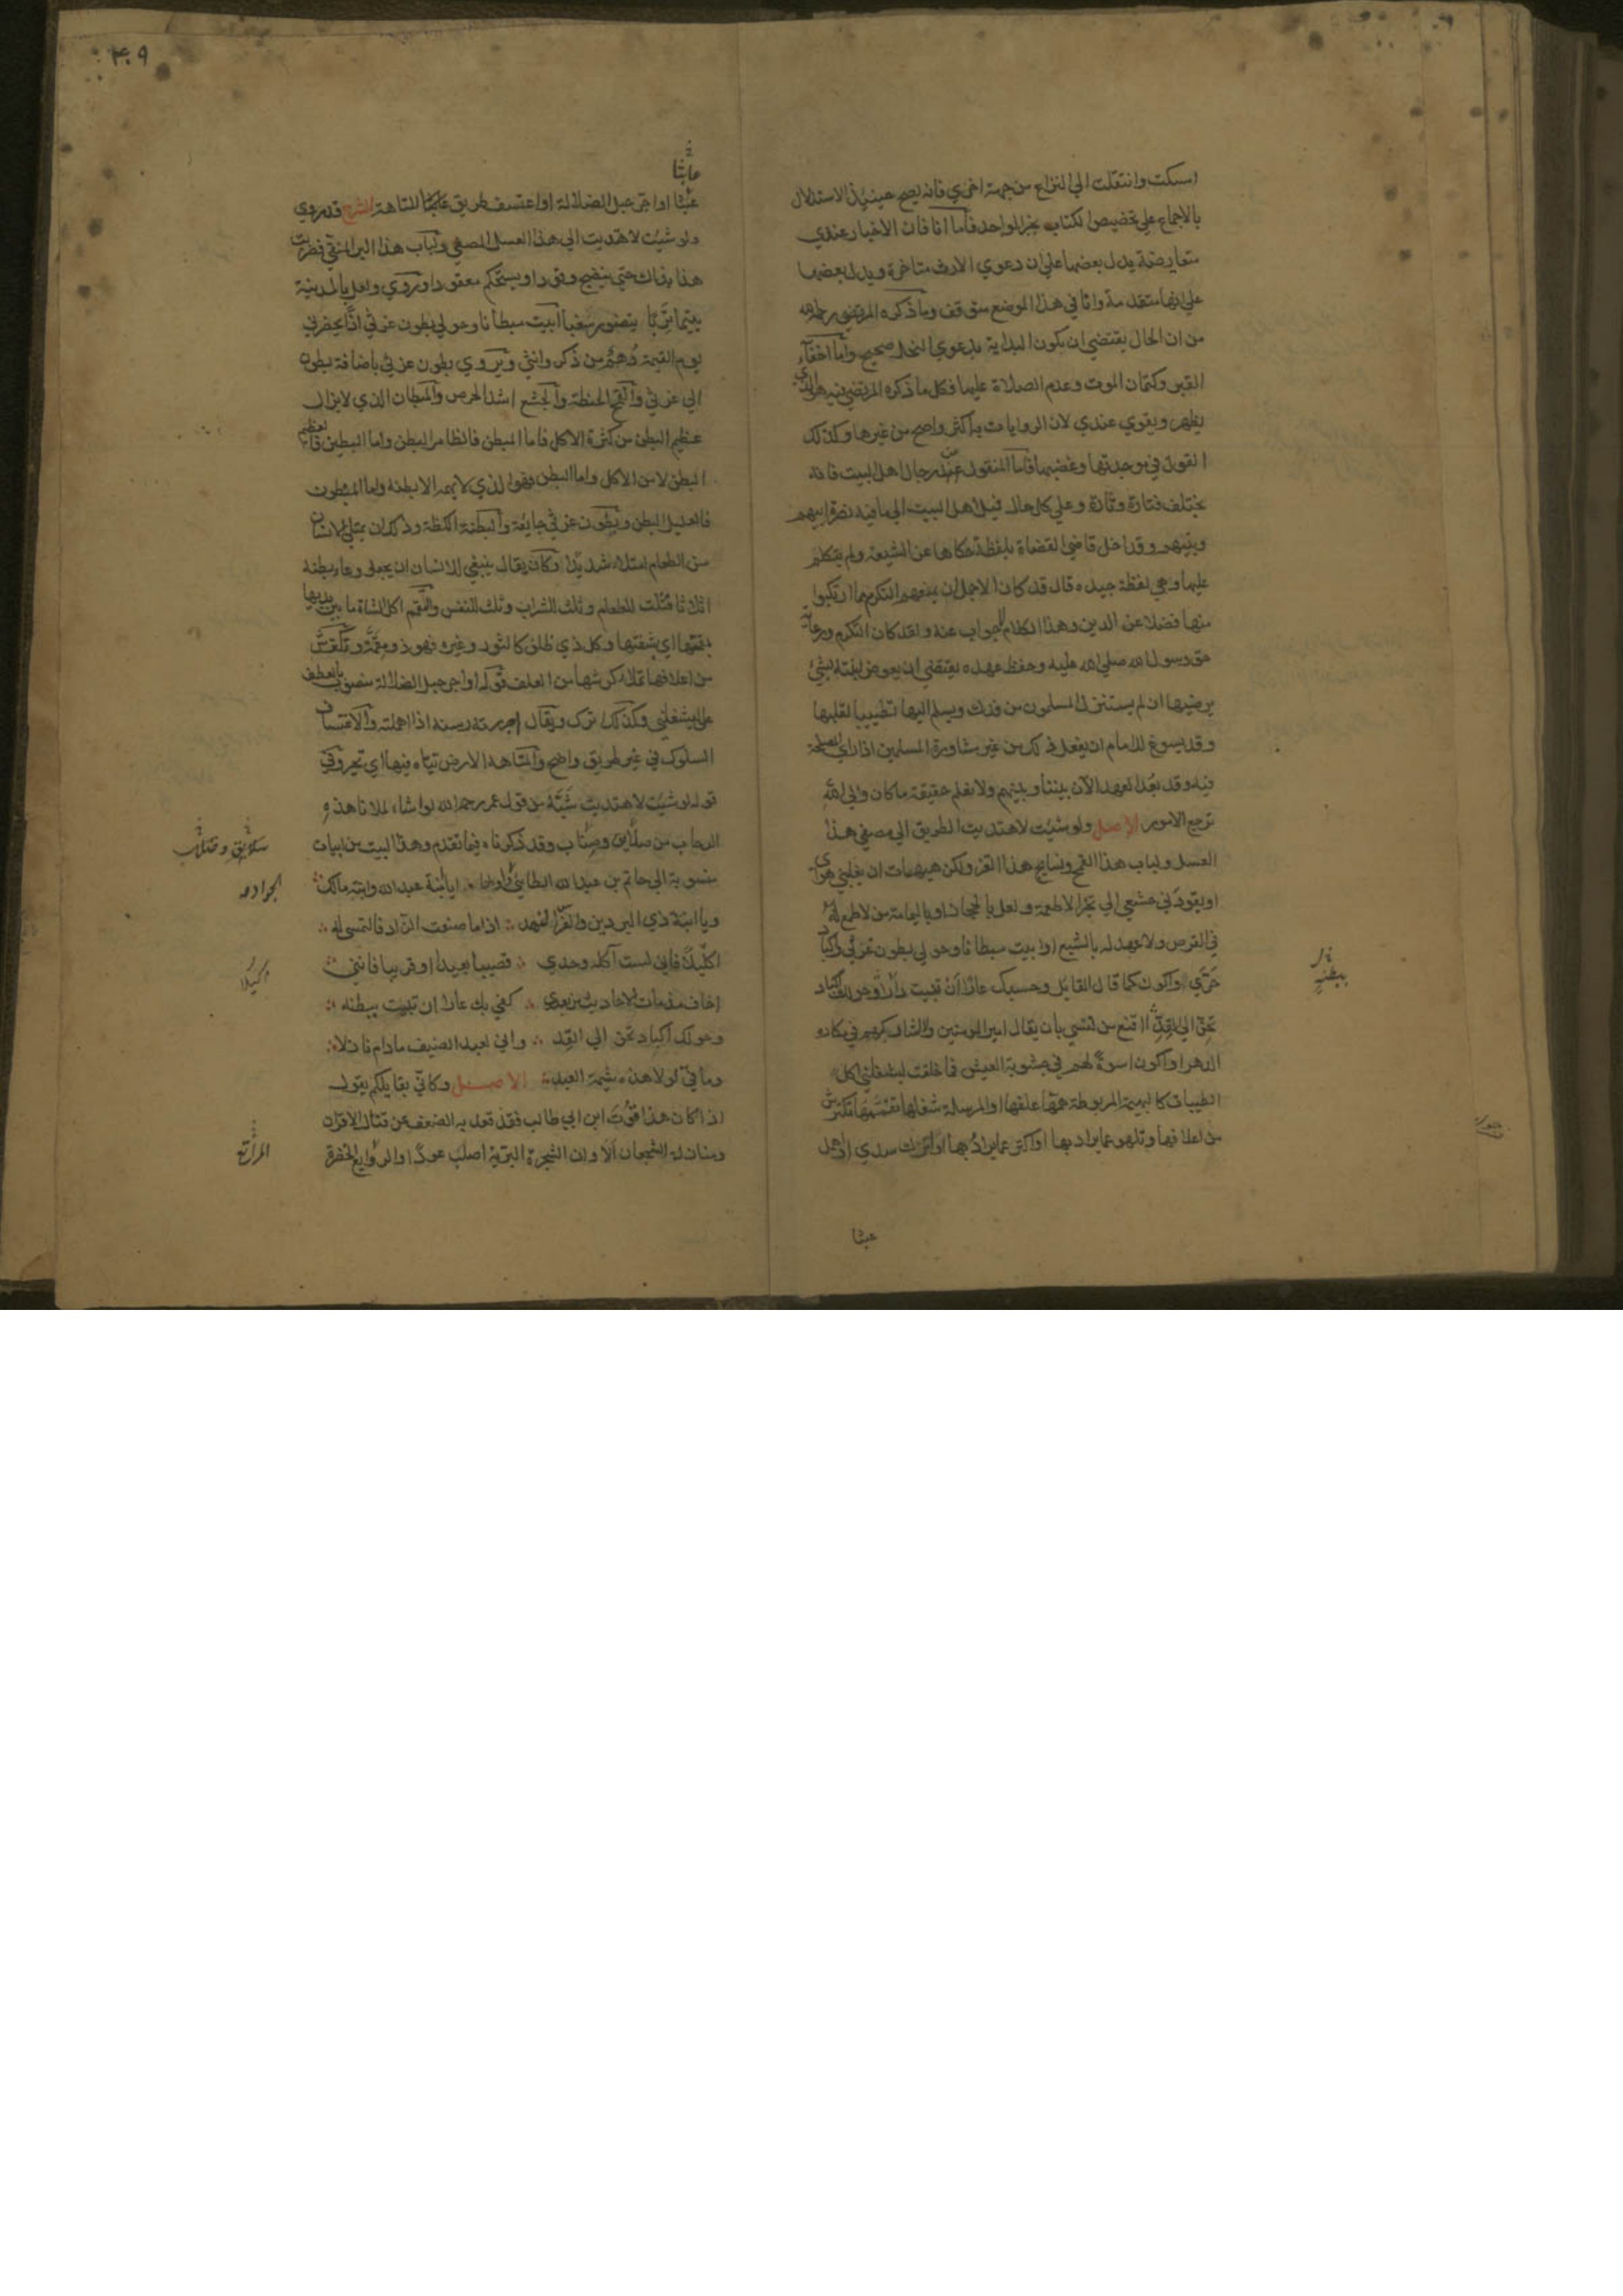 امسكت وانتقلت الى النزاع من جهة اخرى فانه يصح حينئذ الاستدلال
بالاجماع على تخصيص الكتاب بخبر الواحد فاما انا فان الاخبار عندي
متعارضة يدل بعضها على ان دعوي الارث متاخرة ويدل بعضها
على انها متقدمة وانا في هذا الموضع متوقف وما ذكره المرتضي رحمه الله
من ان الحال يقتضي ان يكون البداية بدعوي النحل صحيح واما اخفاء
القبر وكتمان الموت وعدم الصلاة عليها فكل ما ذكره المرتضي فيه هو الذي
يظهر ويقوي عندي لان الروايات به اكثر واصح من غيرها وكذلك
القول في موجدتها وغضبها فاما المنقول عن رجال اهل البيت فانه
يختلف فتارة وتارة وعلي كل حال فميل اهل البيت الى ما فيه نصرة ابيهم
وبيتهم وقد اخل قاضي القضاة بلفظة حكاها عن الشيعة ولم يتكلم
عليها وهي لفظة جيده قال قد كان الاجمل ان يمنعهم التكرم مما ارتكبوا
منها فضلا عن الدين وهذا الكلام لا جواب عنه ولقد كان التكرم ورعاية
حق رسول الله صلى الله عليه وحفظ عهده يقتضي ان يعوض ابنته بشئ
يرضيها ان لم يستنزل المسلمون من فدك ويسلم اليها تطييبا لقلبها
وقد يسوغ للامام ان يفعل ذلك من غير مشاورة المسلمين اذا راي المصلحة
فيه وقد بعُد العهد الآن بيننا وبينهم ولا نعلم حقيقة ما كان والى الله
ترجع الامور الاصل ولو شئت لاهتديت الطريق الى مصفي هذا
العسل ولباب هذا القمح ونسايج هذا القز ولكن هيهات ان يغلبني هواي
او يقودني جشعي الى تخير الاطعمة ولعل بالحجاز او باليمامة من لا طمع له
في القرص ولا عهد له بالشبع او ابيت مبطانا وحولي بطون غرثي واكباد
حري او اكون كما قال القائل وحسبك عارا ان تبيت وحولك اكباد
تحن الى القد أاقنع من نفسي بان يقال امير المومنين ولا اشاركهم في مكاره
الدهر او اكون اسوة لهم في جشوبة العيش فما خلقت ليشغلني اكل
الطيبات كالبهيمة المربوطة همّها علفها او المرسلة شغلها تقممها تكترش
من اعلافها وتلهو عما يراد بها او اترك سدي او اهمل
ببطنةٍ
عبثا
٣٠٩
عابثا
عبثا او اجر حبل الضلالة او اعتسف طريق المتاهة الشرح قد روي
ولو شئت لاهتديت الى هذا العسل المصفي ولباب هذا البر المنقي فضربت
هذا بذاك حتى ينضج وقودا ويستحكم معقودا وروي ولعل بالمدينة
يتيما تربا يتضور سغبا أابيت مبطانا وحولي بطون غرثي اذا يحضرني
يوم القيمة وهم من ذكر وانثي وتروي بطون غرثي باضافة بطون
الى غرثي والقمح الحنطة والجشع اشد الحرص والمبطان الذي لا يزال
عظيم البطن من كثرة الاكل فاما المبطن فالضامر البطن واما البطين فالعظيم
البطن لا من الاكل واما البطن فهو الذي لا يهمه الا بطنه واما المبطون
فالعليل البطن وبطون غرثي جايعة والبطنة الكظة وذلك ان يمتلئ الانسان
من الطعام امتلاء شديدا وكان يقال ينبغي للانسان ان يجعل وعاء بطنه
اثلاثا فثلث للطعام وثلث للشراب وثلث للنفس والتقمم اكل الشاة ما بين يديها
بمقمتها اي بشفتها وكل ذي ظلف كالثور وغيره فهو ذو مقمّة وتكترش
من اعلافها تملأ كرشها من العلف قوله او اجر حبل الضلالة منصوب بالعطف
على يشغلني وكذلك اترك ويقال اجررته رسنه اذا اهملته والاعتساف
السلوك في غير طريق واضح والمتاهة الارض تياه فيها اي يتحير وفي
قوله لو شئت لاهتديت شبه من قول عمر رحمه الله لو اشاء لملانا هذه
الرحاب من صلايق وصناب وقد ذكرناه فيما تقدم وهذا البيت من ابيات
منسوبة الى حاتم بن عبد الله الطايي ايا ابنة عبد الله وابنة مالك
ويا ابنة ذي البردين والفرس النهد اذا ما صنعت الزاد فالتمسي له
اكيلا فاني لست آكله وحدي قصيبا بعيدا او قريبا فانني
اخاف مذمات الاحاديث من بعدي كفي بك عارا ان تبيت ببطنة
وحولك اكباد تحن الى القِد واني لعبد الضيف ما دام نازلا
وما فيّ لولا هذه شيمة العبد الاصل وكاني بقايلكم يقول
اذا كان هذا قوُت ابن ابي طالب فقد قعد به الضعف عن قتال الاقران
ومنازلة الشجعان ألا وان الشجرة البرية اصلب عودًا والروايع الخضرة
صلايق وصناب
اكيلا
المراتع